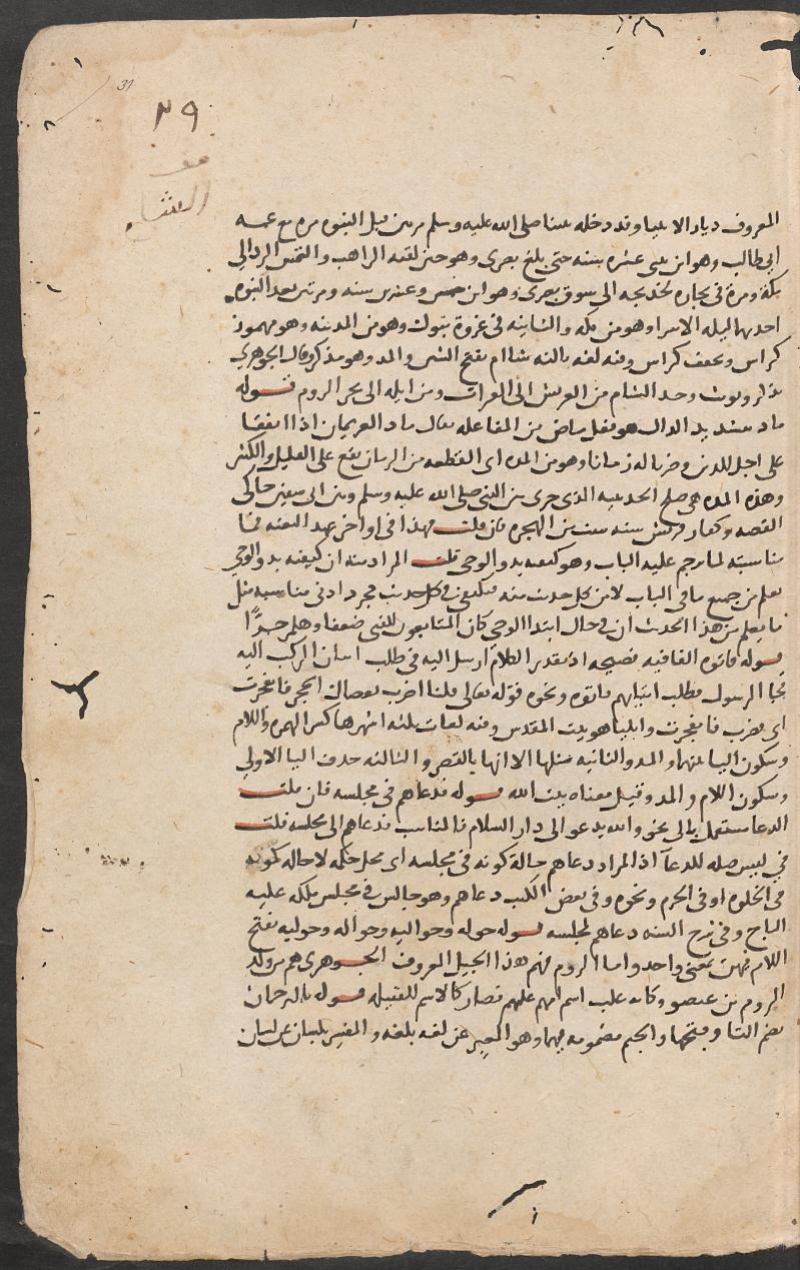 31
٢٩
المعروف ديار الانبيا وقد دخله نبينا صلى الله عليه وسلم مرتين قبل النبوه مره مع عمه
ابي طالب وهو ابن ثنتى عشره سنه حتى بلغ بصرى وهو حين لقيه الراهب والتمس الرد الى
مكة ومرة فى تجارة لخديجه الى سوق بصرى وهو ابن خمس وعشرين سنه ومرتين بعد النبوه
احديهما ليله الاسرا وهو من مكه والثانيه فى غزوة تبوك وهو من المدينه وهو مهموز
كراس ويخفف كراس وفيه لغه ثالثه شاام بفتح الشين والمد وهو مذكر وقال الجوهري
يذكر ويونث وحد الشام من العريش الى الفرات ومن ايله الى بحر الروم قوله
ماد بتشديد الدال هو فعل ماض من المفاعله يقال ماد الغريمان اذا اتفقا
على اجل للدين وضربا له زمانا وهو من المده اى القطعه من الزمان يقع على القليل والكثير
وهذه المده هى صلح الحديبيه الذى جرى بين النبى صلى الله عليه وسلم وبين ابى سفين حاكى
القصه وكفار قريش سنه ست من الهجره فان قلت فهذا فى اواخر عهد البعثه فما
مناسبته لما ترجم عليه الباب وهو كيفيه بدو الوحى قلت المراد منه ان كيفيه بدو الوحي
يعلم من جميع ما فى الباب لا من كل حديث منه فيكفى فى كل حديث مجرد ادنى مناسبه مثل
ما يعلم من هذا الحديث ان فى حال ابتدا الوحي كان المتابعون للنبى ضعفا وهلم جرًّا
قوله فاتوه الفا فيه فصيحه اذ تقدير الكلام ارسل اليه فى طلب اتيان الركب اليه
فجا الرسول فطلب اتيانهم فاتوه ونحوه قوله تعالى فقلنا اضرب بعصاك الحجر فانفجرت
اى فضرب فانفجرت وايليا هو بيت المقدس وفيه لغات ثلثه اشهرها كسر الهمزه واللام
وسكون اليا بينهما والمد والثانيه مثلها الا انها بالقصر والثالثه حذف اليا الاولي
وسكون اللام والمد وقيل معناه بيت الله قوله فدعاهم فى مجلسه فان قلت
الدعا مستعمل بالى نحو والله يدعو الى دار السلام فالمناسب فدعاهم الى مجلسه قلت
في ليس صله للدعآ اذ المراد دعاهم حالة كونه فى مجلسه اى محل حكمه لا حاله كونه
فى الخلوه او فى الحرم ونحوه وفى بعض الكتب دعاهم وهو جالس في مجلس ملكه عليه
التاج وفى شرح السنه دعاهم لمجلسه قوله حوله وحواليه وحواله وحوليه بفتح
اللام فيهن بمعنى واحد واما الروم فهم هذا الجيل المعروف الجوهرى هم من ولد
الروم بن عيصو وكانه غلب اسم ابيهم عليهم فصار كالاسم للقبيله قوله بالترجمان
بضم التا وفتحها والجيم مضمومه فيهما وهو المعبر عن لغه بلغه والمفسر بلسان عن لسان